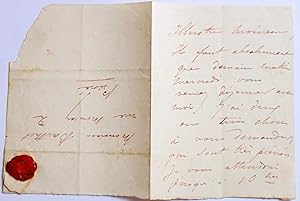 Il faut absolument
que demain matin
mercredi vous
veniez déjeuner avec
moi, j'ai deux
ou trois choses
à vous demander
qui sont très pressées
Je vous attendrai
jusqu'à 10 hres
Monsieur
rue
Paris